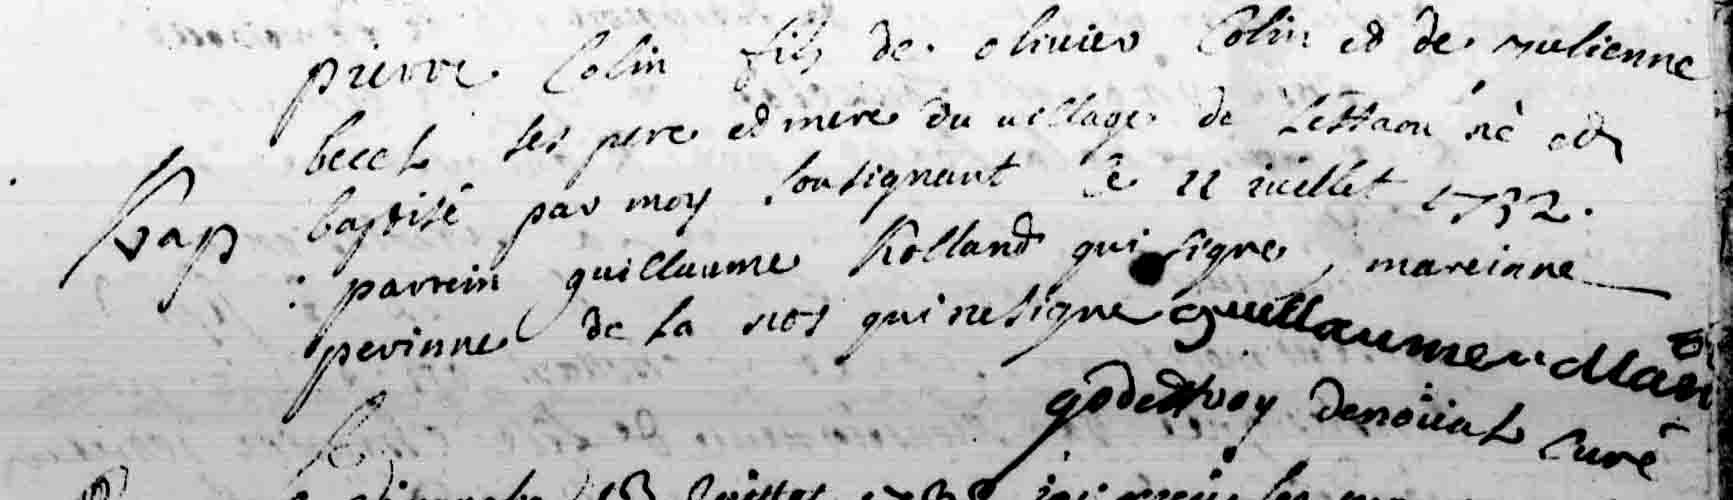 pierre Colin fils de olivier Colin et de Julienne
beccl ses pere et mere du village de Lestaou né et
Bap baptisé par moy soussignant le 11 juillet 1732.
parrein guillaume Rolland qui signe, mareinne
perinne de la nos qui ne signe guillaume
godefroy denoüal Curé